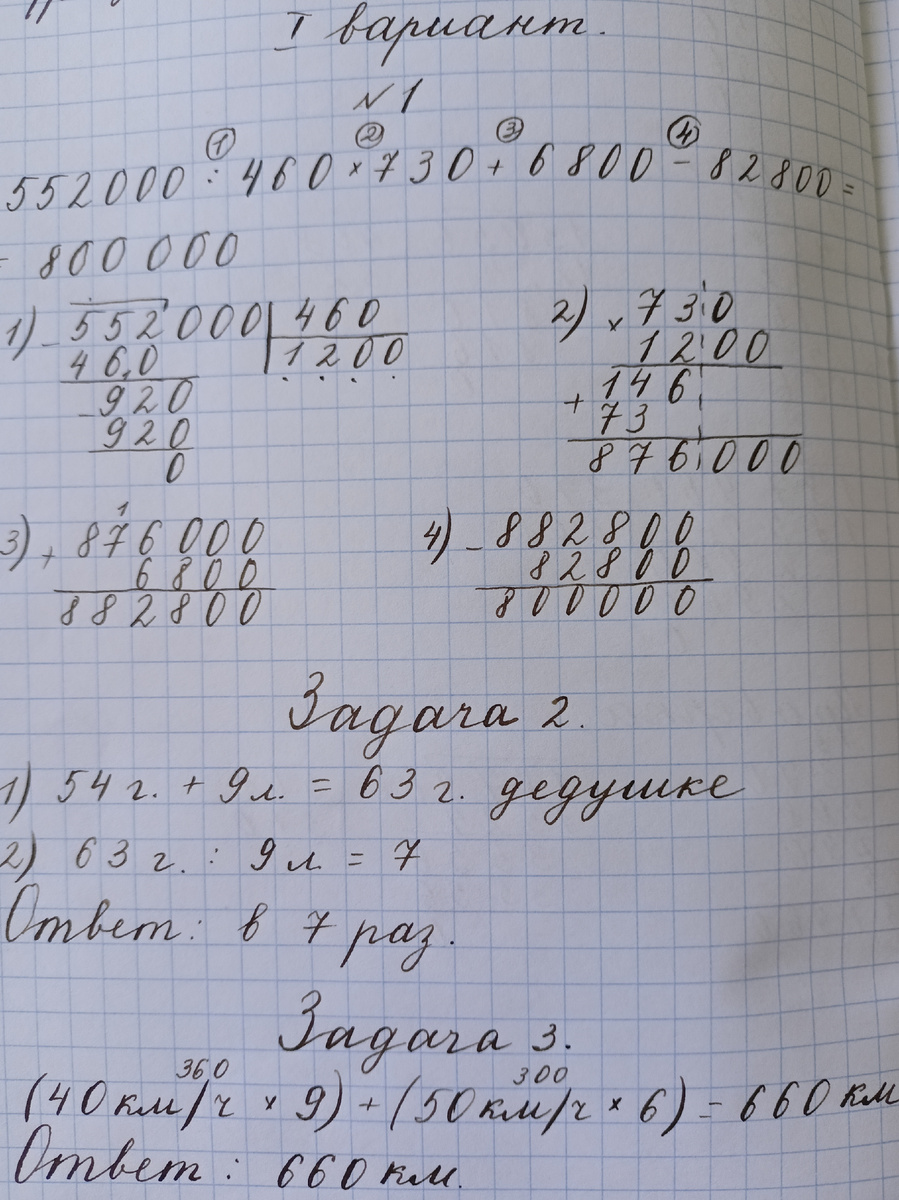 I вариант.
№1
① ② ③ ④
552000 : 460 × 730 + 6800 - 82800 =
= 800 000
1) - 552000 | 460
460 | 1200
- 920
920
0
2) × 730
1200
+ 146
73
876000
3) + 876 000
1
6 800
882800
4) - 882800
82800
800000
Задача 2.
1) 54 г. + 9 л. = 63 г. дедушке
2) 63 г. : 9 л = 7
Ответ: в 7 раз.
Задача 3.
360 300
(40 км/ч × 9) + (50 км/ч × 6) = 660 км
Ответ: 660 км.